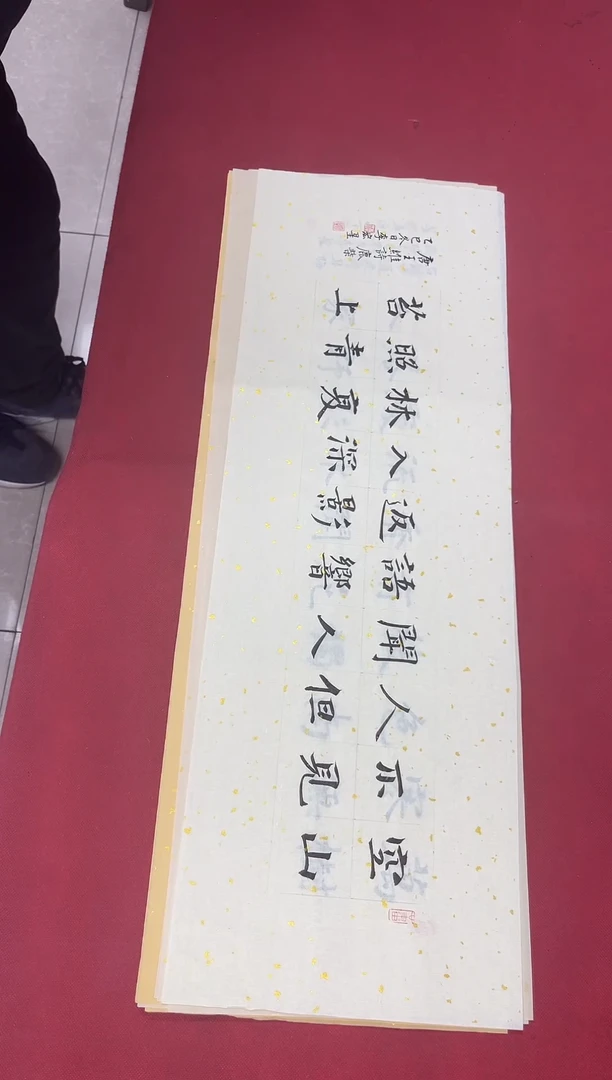 空山
不見
人但
聞人
語響
返影
入深
林复
照青
苔上
唐王維詩鹿柴
乙巳冬日李